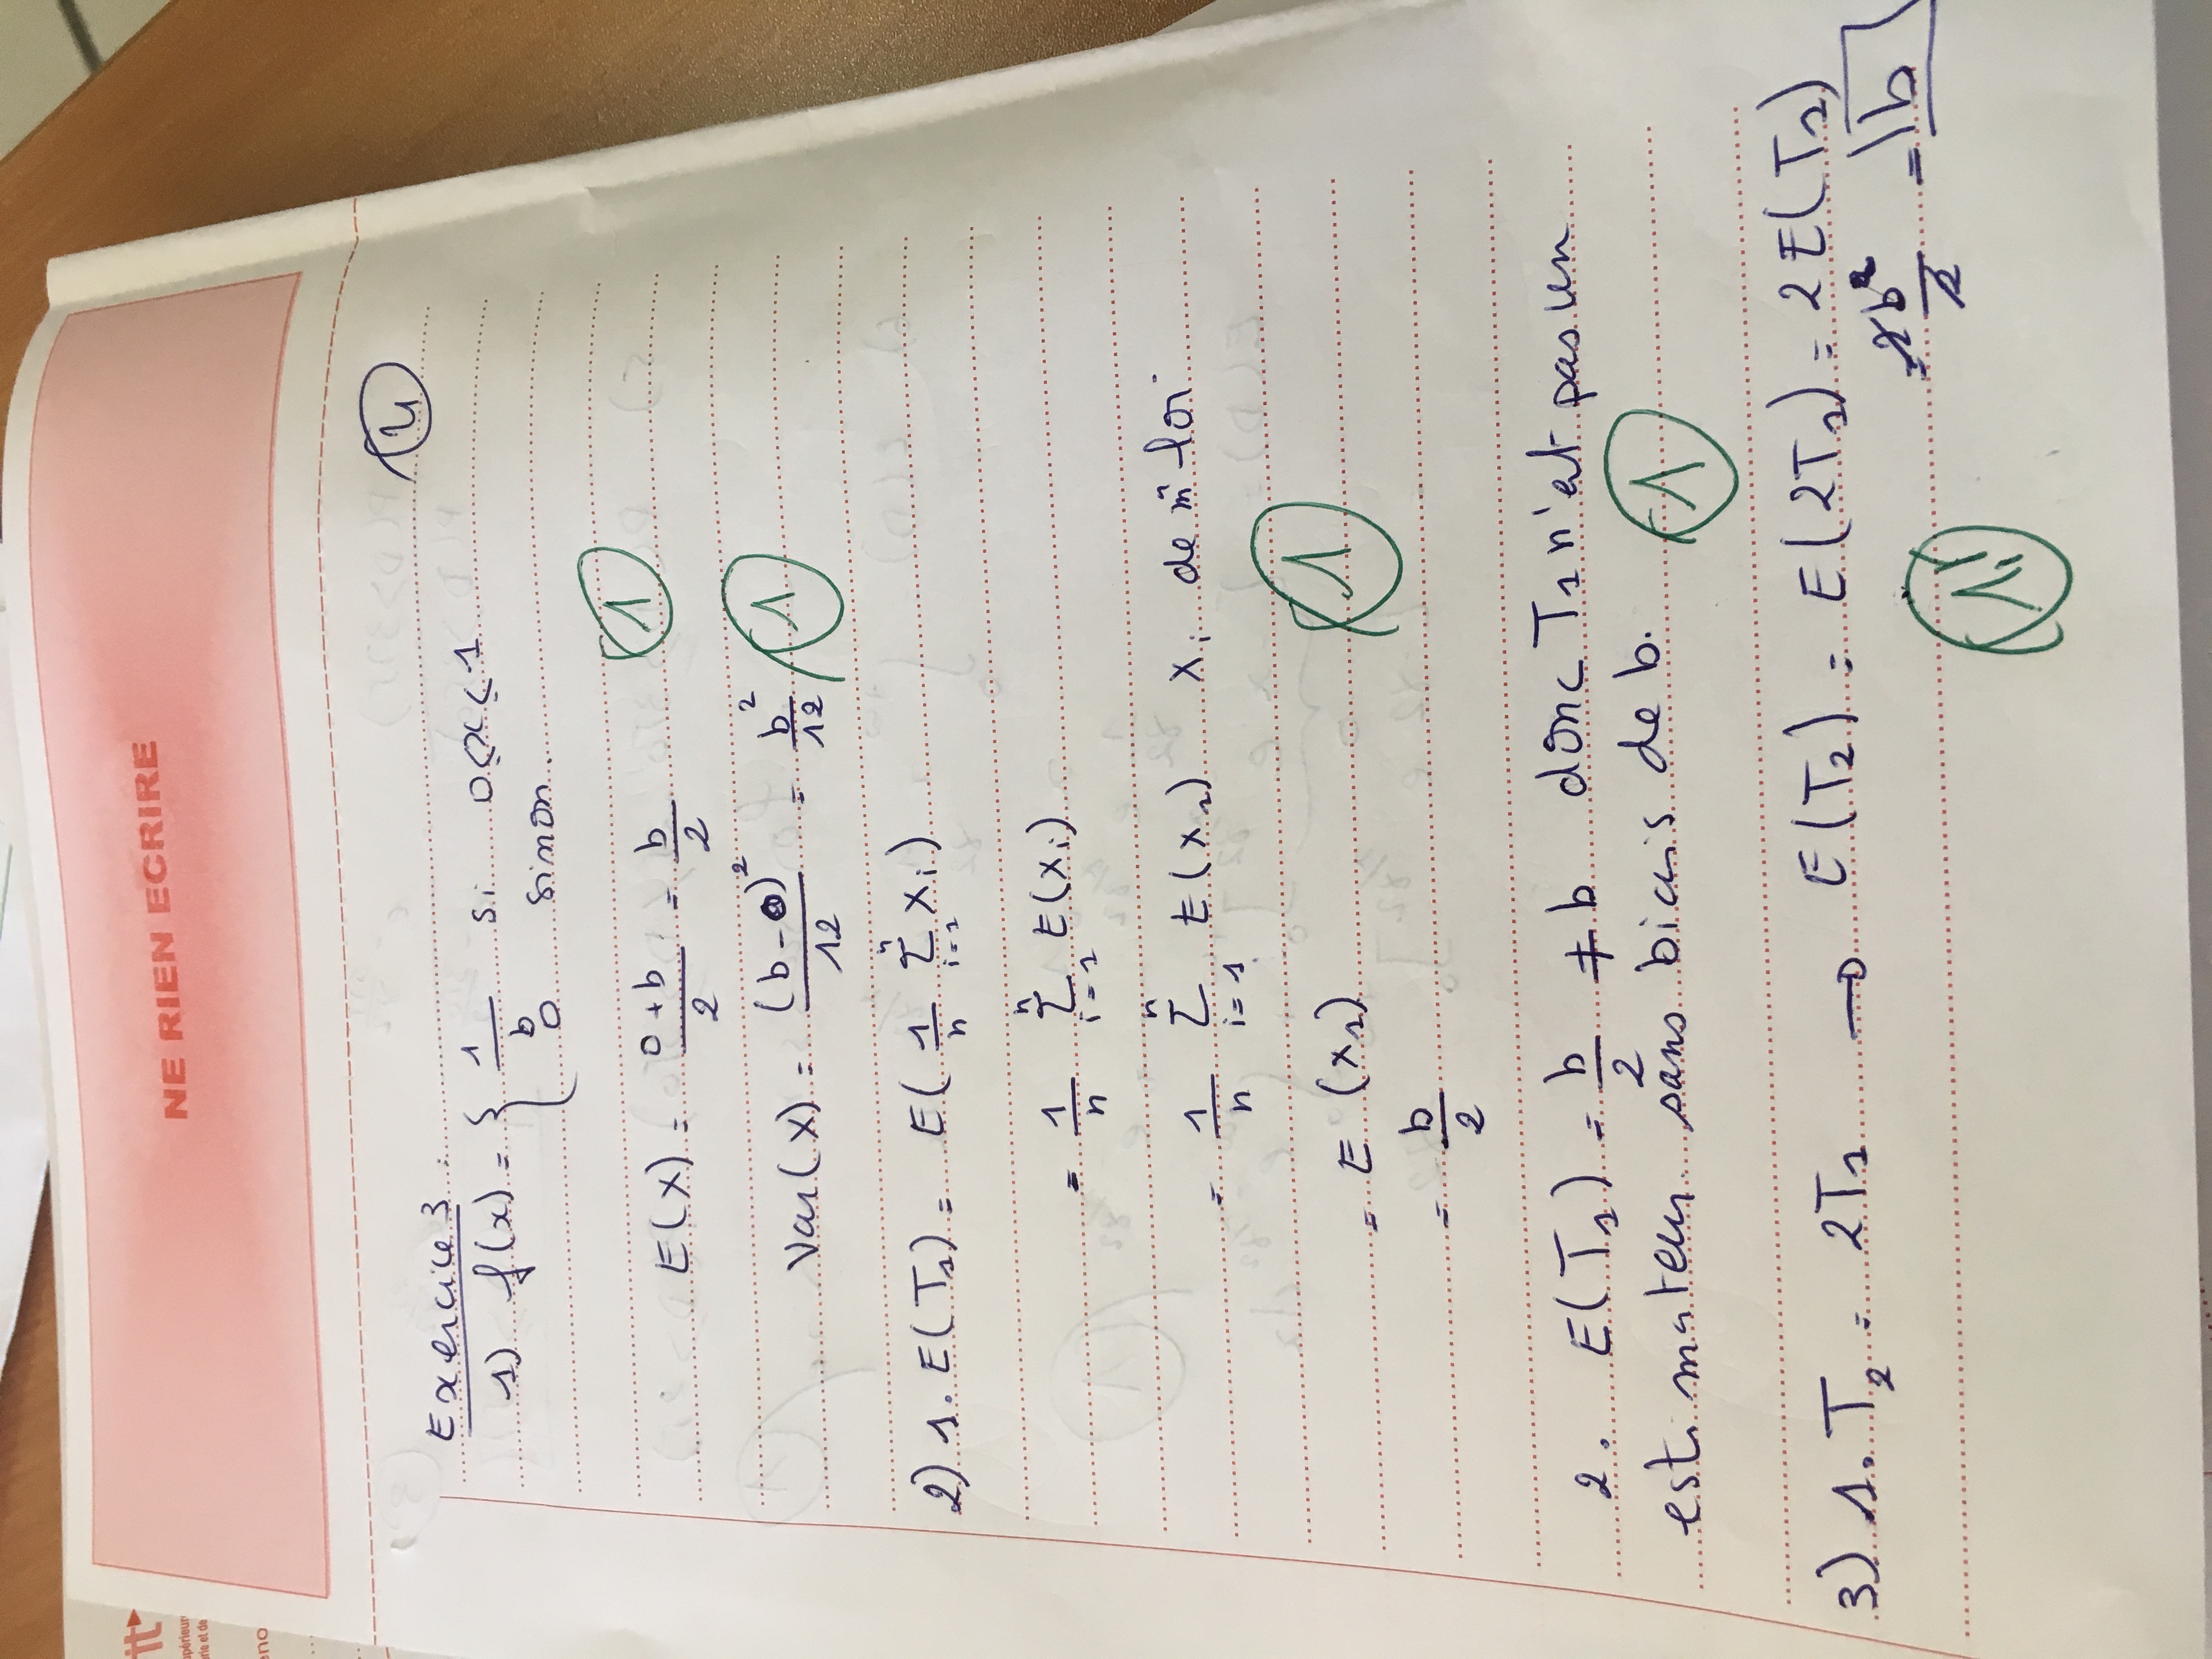 it
NE RIEN ECRIRE
4
Exercice 3 :
1) f(x) = { 1/b si 0 ≤ x ≤ 1
0 sinon.
E(X) = (0 + b)/2 = b/2
1
Var(X) = (b - 0)²/12 = b²/12
1
2) 1. E(T₁) = E( 1/n Σ_{i=1}^{n} Xi )
= 1/n Σ_{i=1}^{n} E(Xi)
= 1/n Σ_{i=1}^{n} E(X₁) Xi de m̂ loi
= E (X₁)
1
= b/2
2. E(T₁) = b/2 ≠ b donc T₁ n'est pas un
estimateur sans biais de b.
1
3) 1. T₂ = 2T₁ → E(T₂) = E(2T₁) = 2E(T₁)
= 2b/2 = b
1